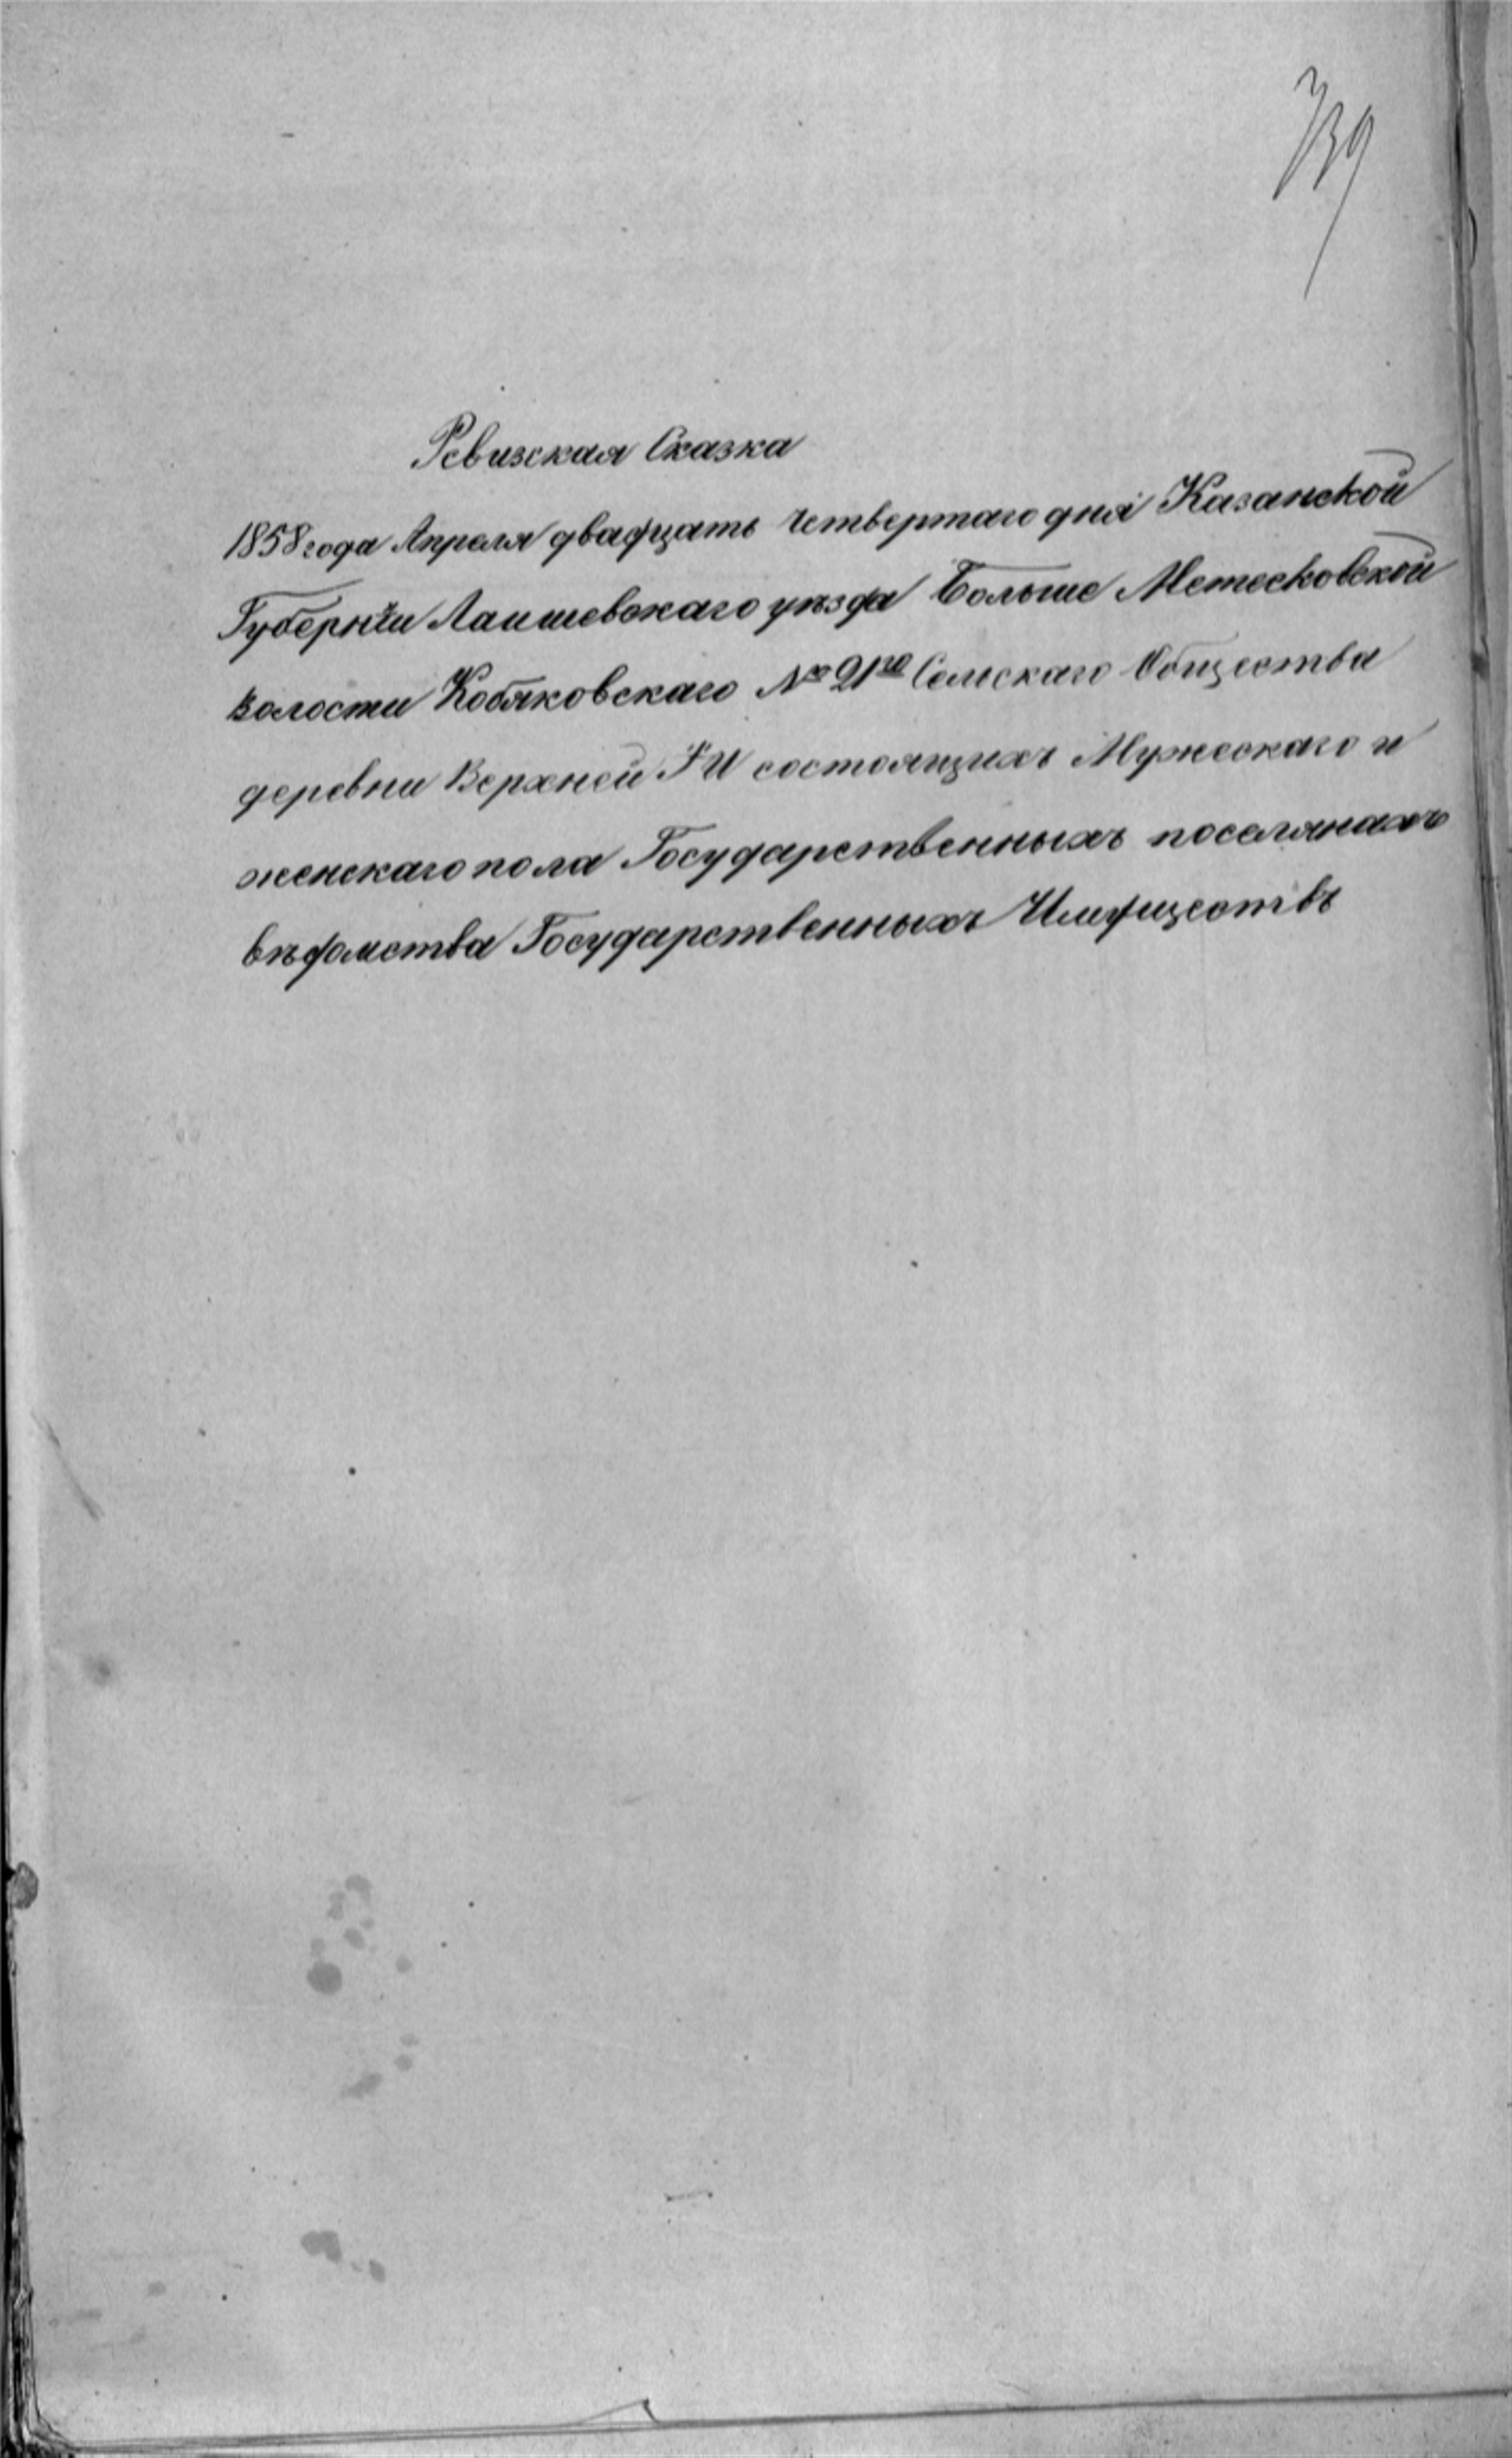 739
Ревизская Сказка
1858 года Апреля двадцать четвертаго дня Казанской
Губерніи Лаишевскаго уѣзда Больше Метесковской
волости Кобяковскаго № 21го Сельскаго Общества
деревни Верхней состоящихъ Мужескаго и
женскаго пола Государственныхъ поселянахъ
вѣдомства Государственныхъ Имуществъ